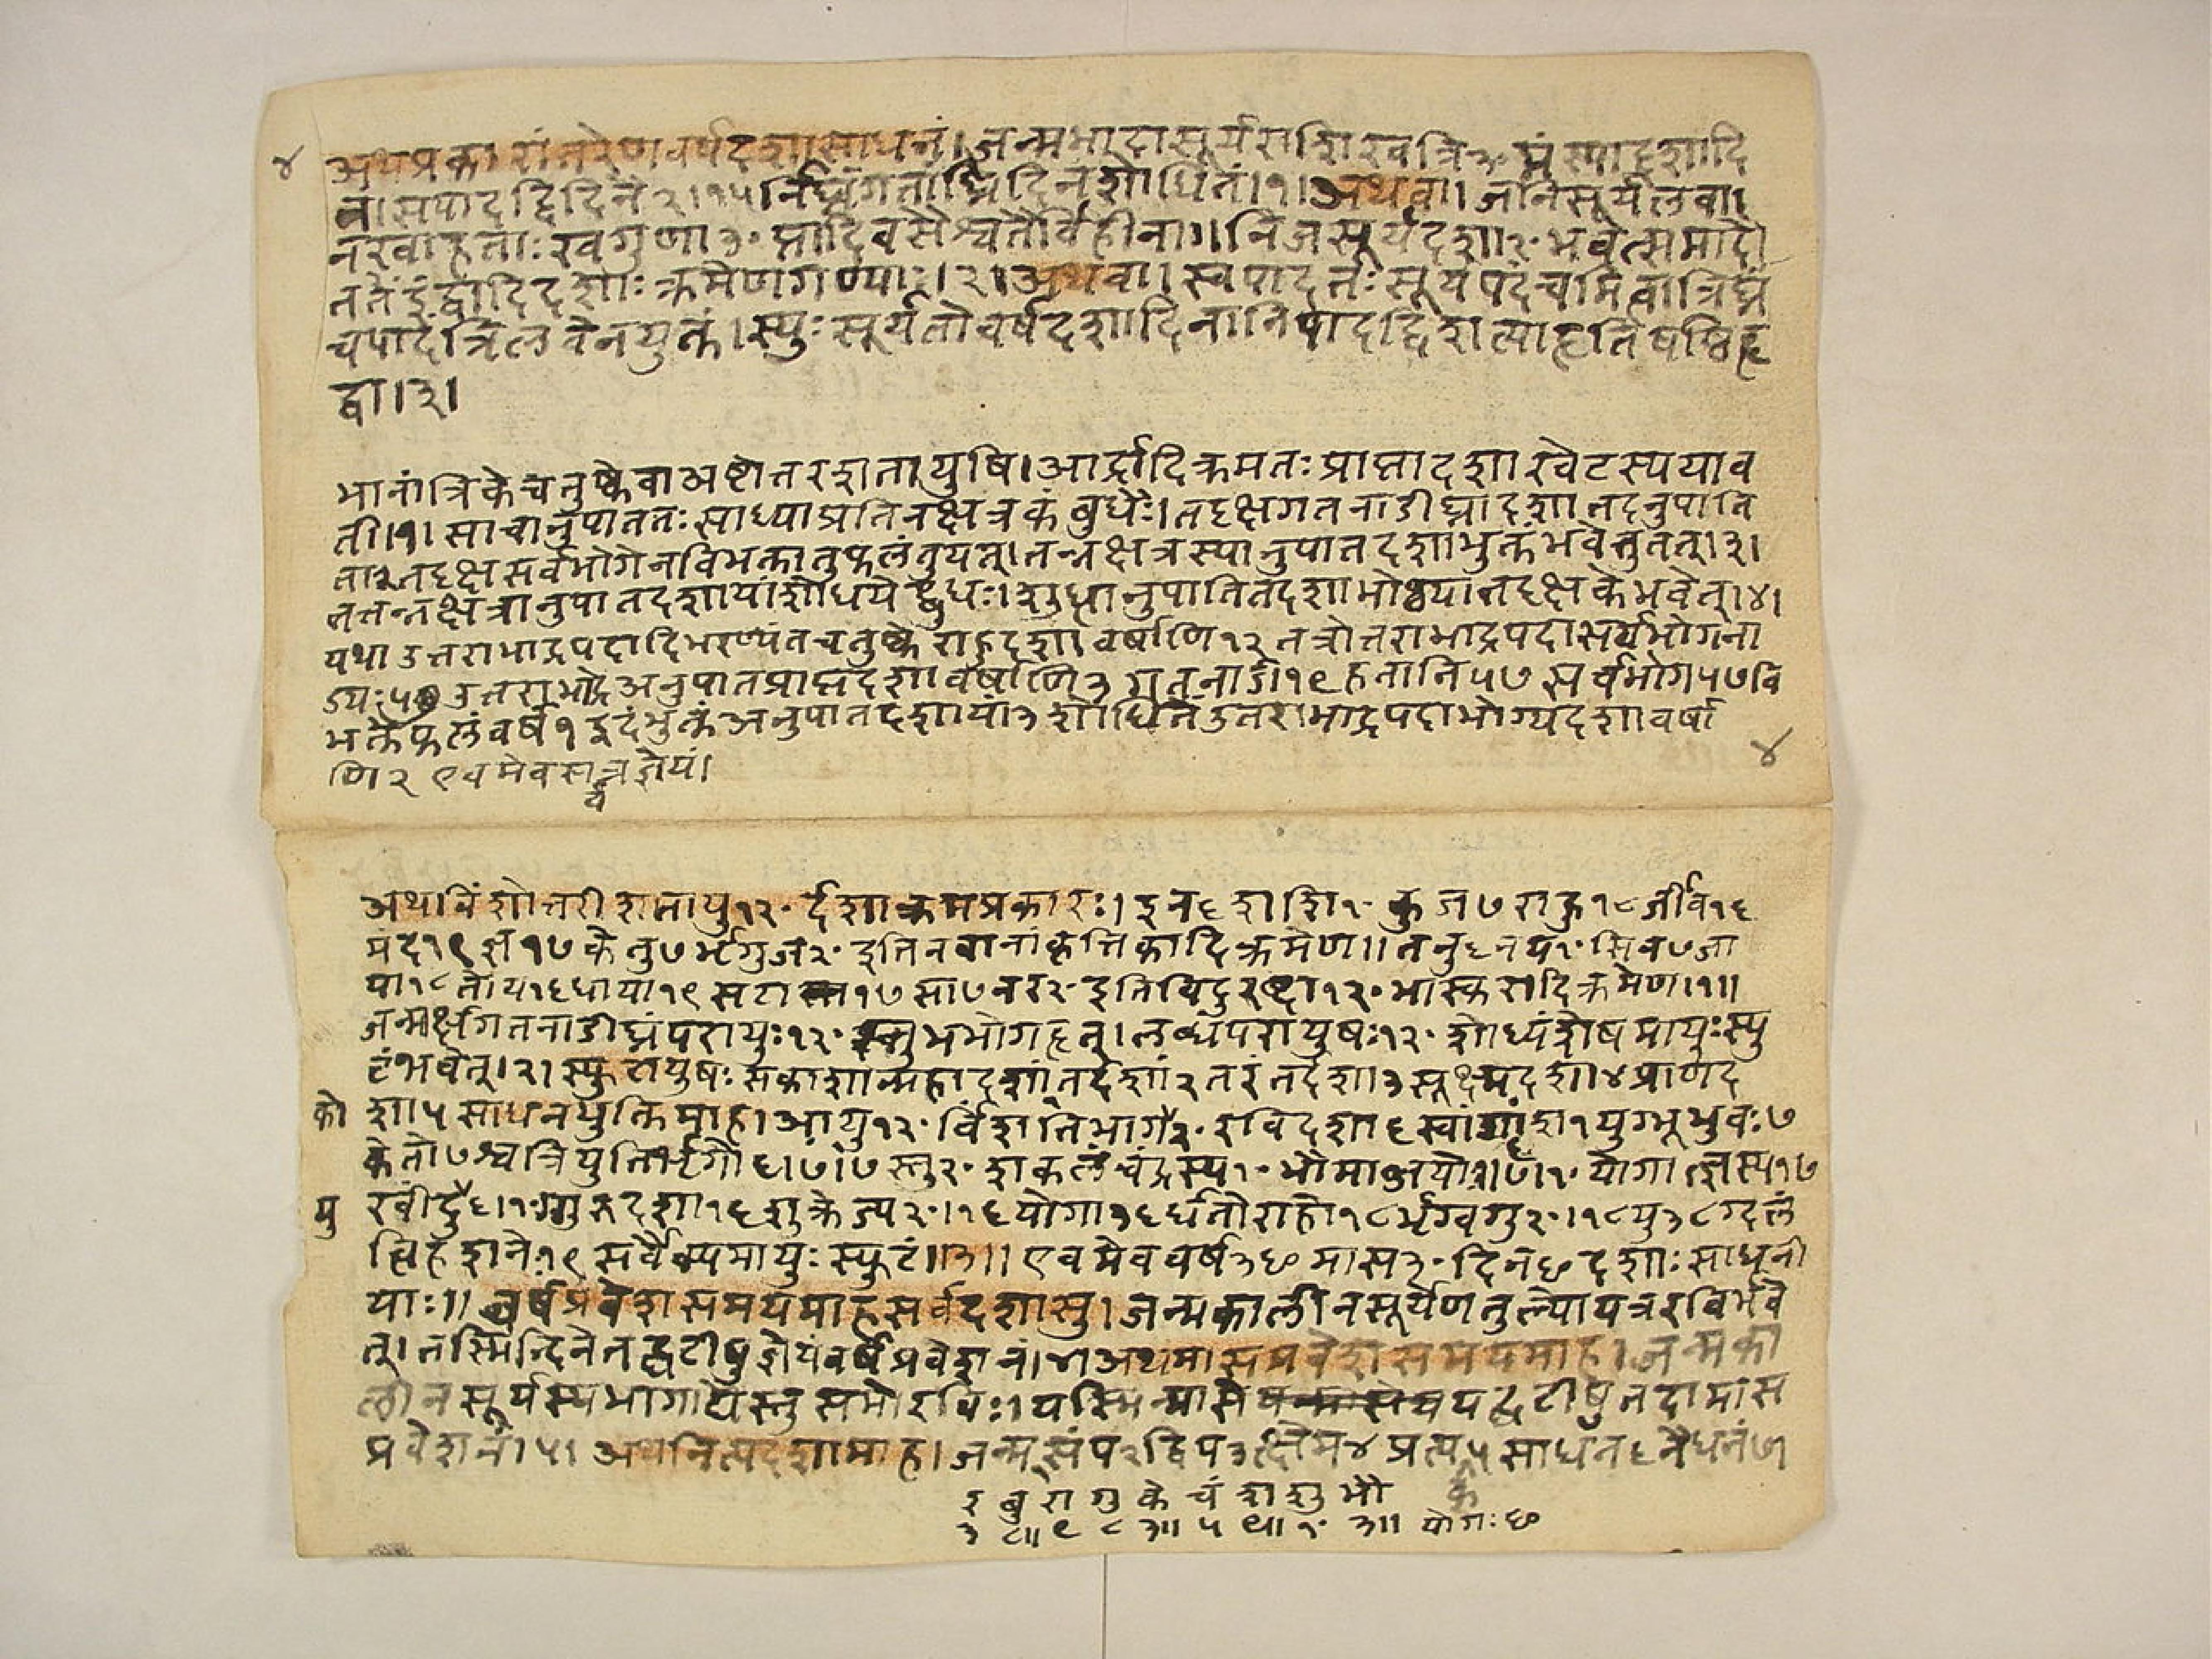 ४ अथप्रकारांतरेणवर्षदशासाधनं।जन्मभादासूर्यराशिखत्रि३०घ्नंस्याद्दशादि
न।सपादद्विदिनं२।१५।निघ्नंगतांघ्रिदिनशोधितं।१।अथवा।जनिसूर्यलवा।
नखाहताःखगुणा३०प्तादिवसैश्चतैर्विहीना॥निजसूर्यदशा२०भवेत्समादौ
नतैंइंद्वादिदशाःक्रमेणगण्याः।२।अथवा।स्वपादतःसूर्यपदंचमित्वात्रिघ्नं
चपादंत्रिलवेनयुक्तं।स्युःसूर्यतोवर्षदशादिनानिपादद्विशत्याहृतिषष्ठिहृ
द्वा।३।
भानांत्रिकेचतुष्केवाअष्टोत्तरशतायुषि।आर्द्रादिक्रमतःप्राप्तादशाखेटस्ययाव
ती।१।साचानुपाततःसाध्याप्रतिनक्षत्रकंबुधैः।तदृक्षगतनाडीघ्नादशातदनुपाति
ता२तदृक्षसर्वभोगेनविभक्तातुफलंतुयत्।तन्नक्षत्रस्यानुपातदशाभुक्तंभवेत्तुतत्।३।
तत्तन्नक्षत्रानुपातदशायांशोधयेद्बुधः।शुद्धानुपातितदशाभोग्यातदृक्षकेभवेत्।४।
यथाउत्तराभाद्रपदादिभरण्यंतचतुष्केराहुदशावर्षाणि१२तत्रोत्तराभाद्रपदासर्वभोगना
ड्यः५७उत्तराभाद्रेअनुपातप्राप्तदशावर्षाणि३गतनाडी१९हतानि५७सर्वभोग५७वि
भक्तेफलंवर्ष१इदंभुक्तंअनुपातदशायां३शोधितंउत्तराभाद्रपदाभोग्यदशावर्षा
णि२एवमेवसर्वत्रज्ञेयं।
४
अथविंशोत्तरीशतायु१२०र्दशाक्रमप्रकारः।इन६शशि१०कुज७राहु१८जीव१६
मंद१९ज्ञ१७केतु७भृगुज२०इतिनवानांकृत्तिकादिक्रमेण॥तनु६नय१०सिव७जा
पा१८तोय१६धाया१९सटा१७सा७नर२०इतिविदुरब्दा१२०भास्करादिक्रमेण।१॥
जन्मर्क्षगतनाडीघ्नंपरायुः१२०स्तुभभोगहृत्।लब्धंपरायुषः१२०शोध्यंशेषमायुःस्फु
टंभवेत्।२।स्फुटायुषःसकाशान्महादशांतर्दशां२तरंतर्दशा३सूक्ष्मदशा४प्राणद
को शा५साधनयुक्तिमाह।आयु१२०र्विंशतिभागै२०रविदशा६स्वांगांश१युग्भूभुवः७
केतो७श्चत्रियुतिर्भृगौ६।७।७स्तु२०शकलंचंद्रस्य१०भौमाब्जयो।७।१०योगाज्ज्ञस्य१७
यु रवींदु६।१०र्गुरुदशा१६शुक्रेज्य२०।१६योगा३६र्धतोराहो१८र्भृग्वगु२०।१८यु३८ग्दलं
त्विहशने१९सर्वैक्यमायुःस्फुटं॥३॥एवमेववर्ष३६०मास३०दिन६०दशाःसाधनी
याः॥वर्षप्रवेशसमयमाहसर्वदशासु।जन्मकालीनसूर्येणतुल्योयत्ररविर्भवे
त्।तस्मिन्दिनेतद्घटीषुज्ञेयंवर्षप्रवेशनं।४।अथमासप्रवेशसमयमाह।जन्मका
लीनसूर्यस्यभागाद्यैस्तुसमोरविः।यस्मिन्मासेयद्घटीषुतदामास
प्रवेशनं।५।अथनित्यदशामाह।जन्म१संप२द्विप३त्क्षेम४प्रत्य५साधन६नैधनं७।
र बु रा गु के चं श शु भौ
३ ८॥ ९ ८ ३॥ ५ ९॥ १० ३॥ योगः६०